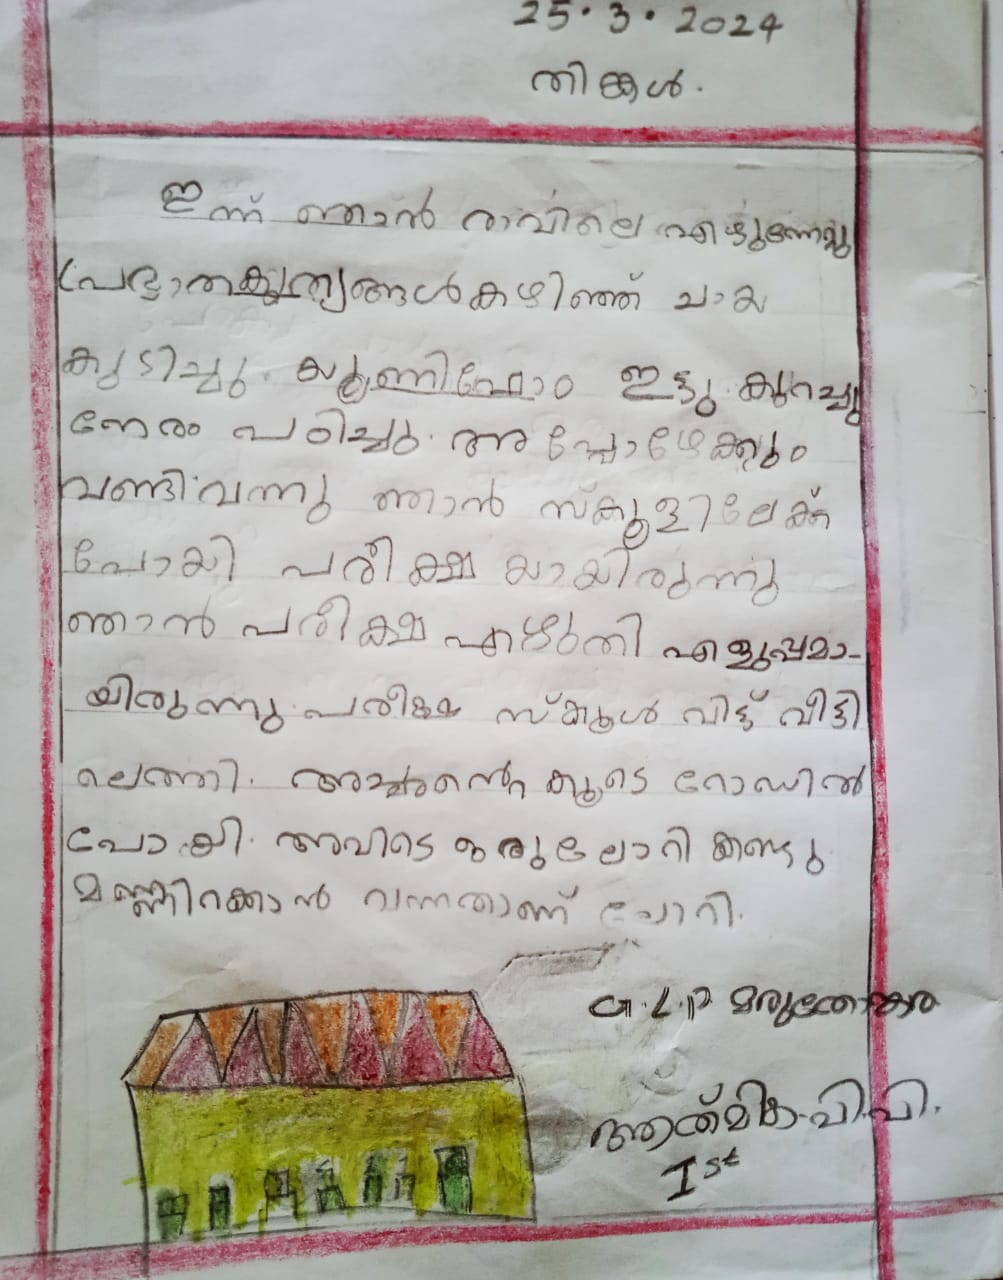 25.3.2024
തിങ്കൾ.
ഇന്ന് ഞാൻ രാവിലെ എഴുന്നേറ്റു
പ്രഭാതകൃത്യങ്ങൾകഴിഞ്ഞ് ചായ
കുടിച്ചു. യൂണിഫോം ഇട്ടു. കുറച്ചു
നേരം പഠിച്ചു. അപ്പോഴേക്കും
വണ്ടിവന്നു ഞാൻ സ്കൂളിലേക്ക്
പോയി പരീക്ഷയായിരുന്നു
ഞാൻ പരീക്ഷ എഴുതി എളുപ്പമാ-
യിരുന്നു. പരീക്ഷ സ്കൂൾ വിട്ട് വീട്ടി
ലെത്തി. അച്ഛന്റെ കൂടെ റോഡിൽ
പോയി. അവിടെ ഒരു ലോറി കണ്ടു.
മണ്ണിറക്കാൻ വന്നതാണ് ലോറി.
G.L.P മരുതോങ്കര
ആത്മിക.വി.പി.
Ist